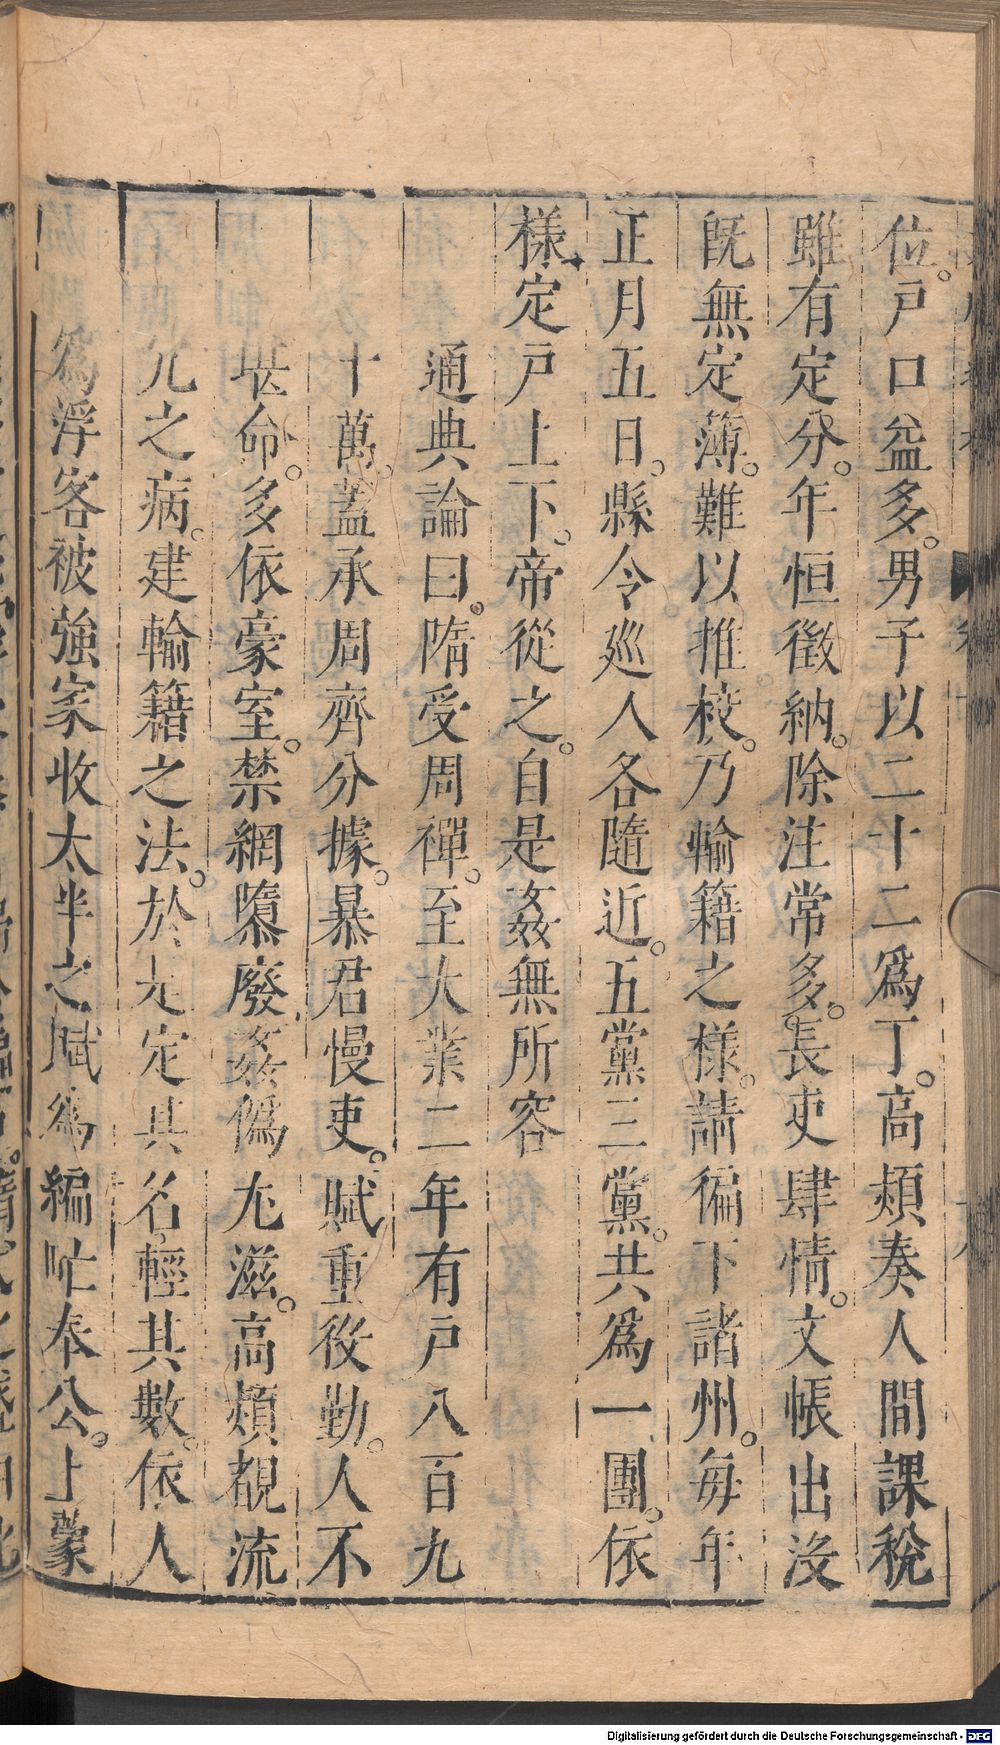 位。戸口益多。男子以二十二爲丁。高熲奏人間課稅
雖有定分。年恒徵納。除注常多。長吏肆情。文帳出沒
旣無定簿。難以推校。乃輸籍之樣。請徧下諸州。每年
正月五日。縣令廵人各隨近。五黨三黨。共爲一團。依
樣定戸上下。帝從之。自是姦無所容
通典論曰。隋受周禪。至大業二年有戸八百九
十萬。蓋承周齊分據。暴君慢吏。賦重役勤。人不
堪命。多依豪室。禁網隳廢。姦僞尤滋。高熲覩流
冗之病。建輸籍之法。於是定其名。輕其數。依人
爲浮客被強家收太半之賦爲編甿奉公。上蒙
Digitalisierung gefördert durch die Deutsche Forschungsgemeinschaft - DFG